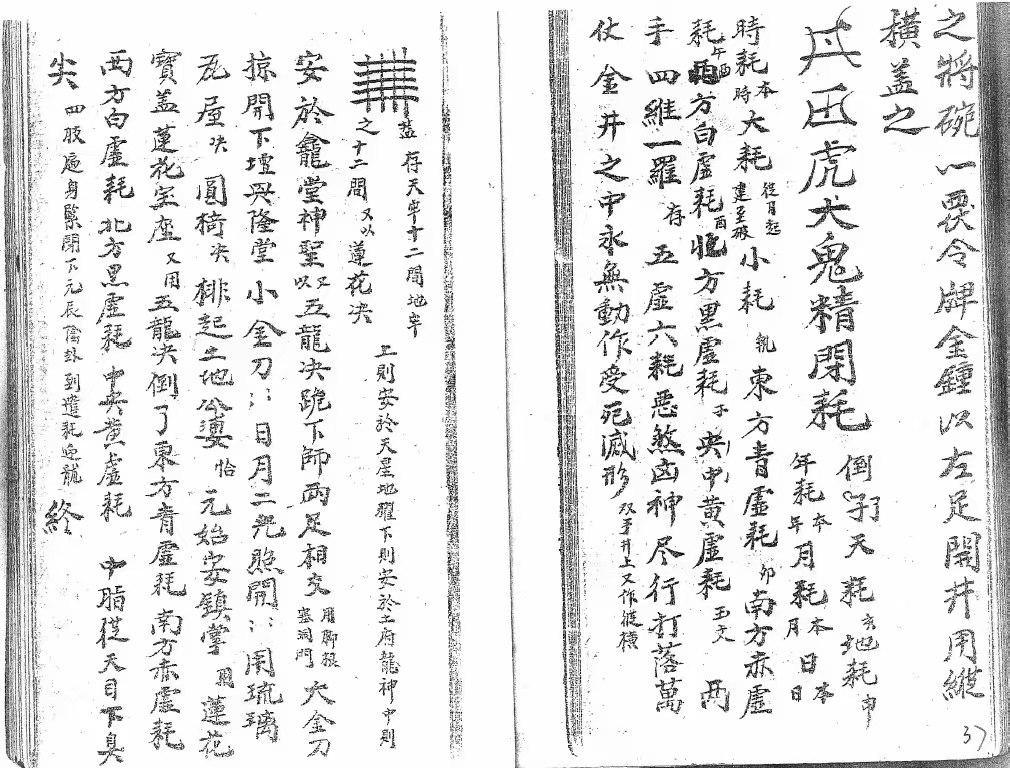 之將碗一要令牌金鍾以左足開井用縱
橫盖之
虎犬鬼精閉耗 倒 天耗亥地耗申
年耗本年月耗本月日本日
時耗本時大耗從月起建至破小耗 東方青虛耗卯南方赤虛
耗午西方白虛耗酉北方黑虛耗子央中黃虛耗 西
手四維一羅存五虛六耗惡煞凶神尽行打落萬
仗金井之中永無動作受死滅形双手井上又作縱橫
盖存天牢十二間地牢
之十二間又以蓮花决上則安於天星地曜下則安於土府龍神中則
安於龕堂神聖又以五龍决跪下師两足相交用聊根塞洞門大金刀
掠開下壇興隆堂小金刀:日月二光照開:用琉璃
瓦屋决圓椅决排起土地公婆 元始安鎮掌用蓮花
寶盖蓮花宝座又用五龍决倒了東方青虛耗南方赤虛耗
西方白虛耗北方黑虛耗中央黃虛耗 中脂從天目下臭
尖四肢遍身緊閉下元辰陰卦到遣耗 龍 終
37